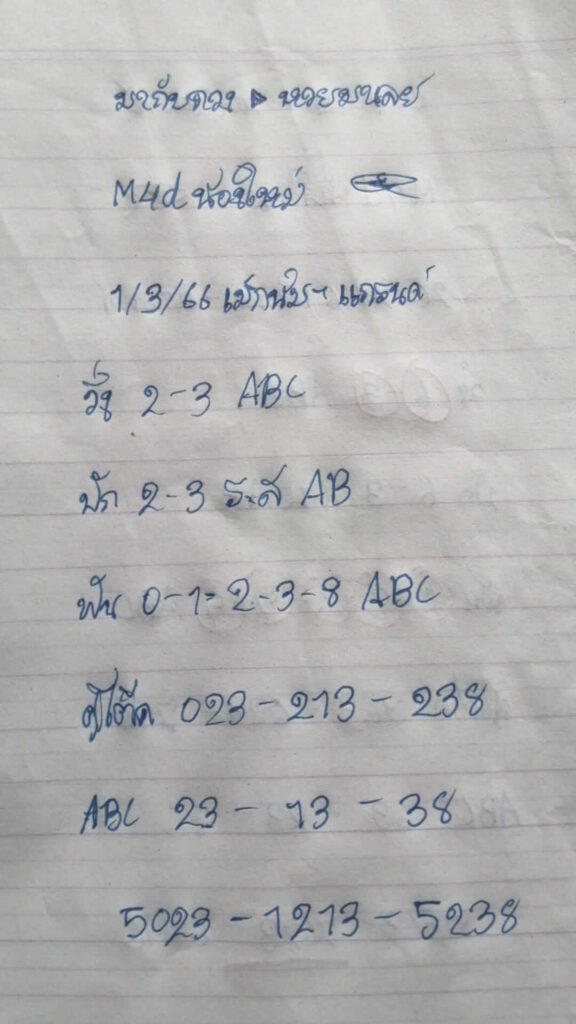 มากับดวง ▶ หวยมาเลย
M4d น้องใหม่
1/3/66 แม็กนั่มฯ แกรนด์
วิ่ง 2-3 ABC
ปัก 2-3 ระส AB
ฟัน 0-1-2-3-8 ABC
คู่โต๊ด 023-213-238
ABC 23-13-38
5023-1213-5238